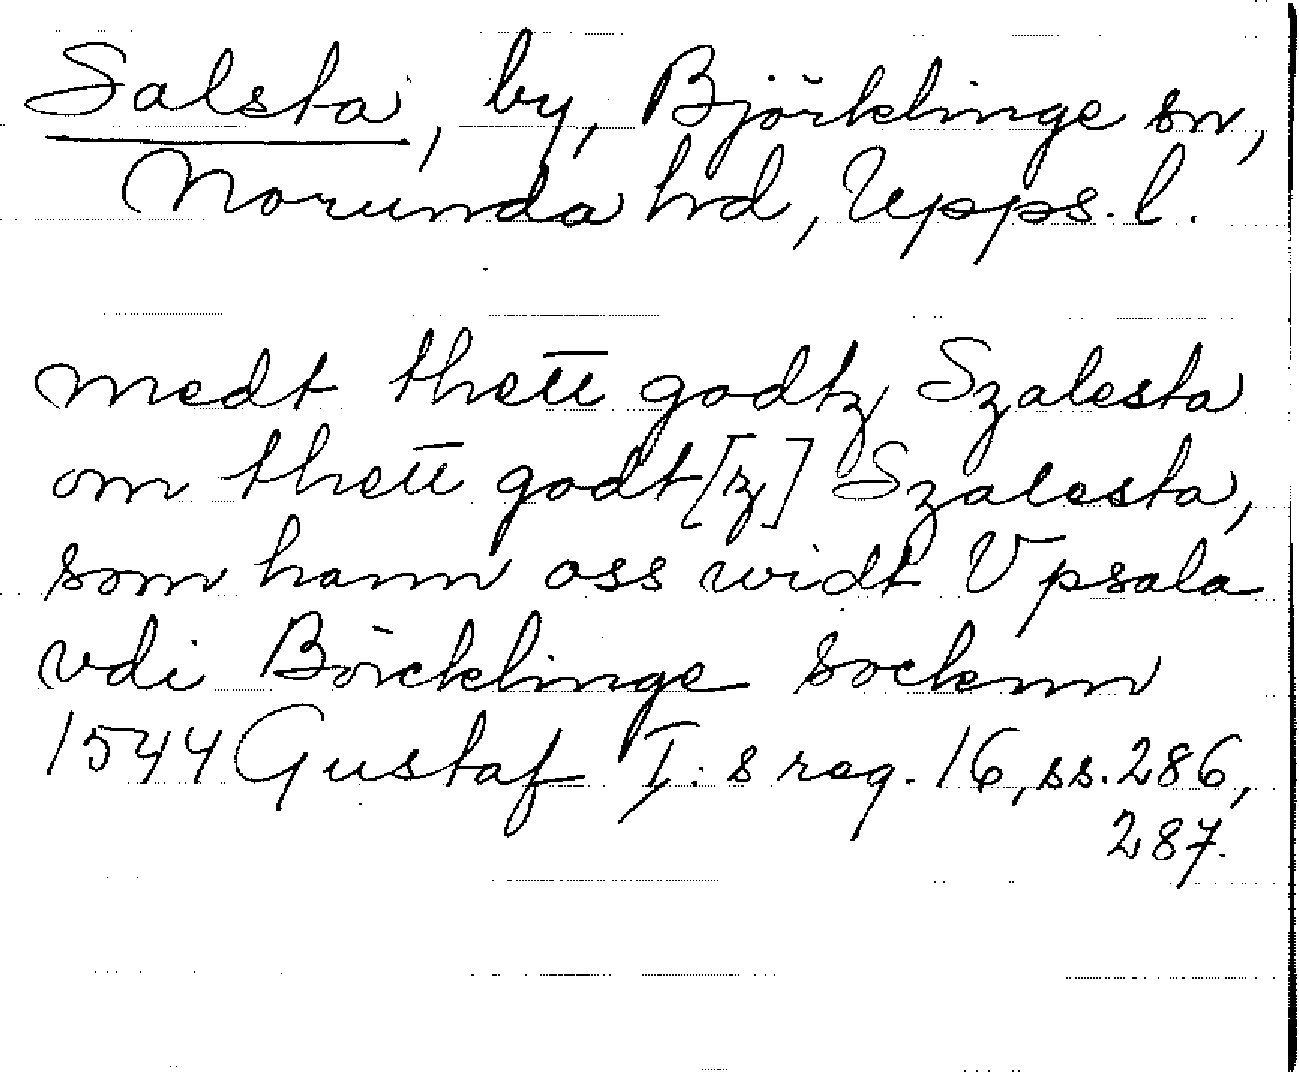 Salsta, by, Björklinge sn,
Norunda hd, Upps. l.
medt thett godtz Szalesta
om thett godt[z] Szalesta,
som hann oss widt Vpsala
vdi Börcklinge socknn
1544 Gustaf I:s reg. 16, ss. 286,
287.